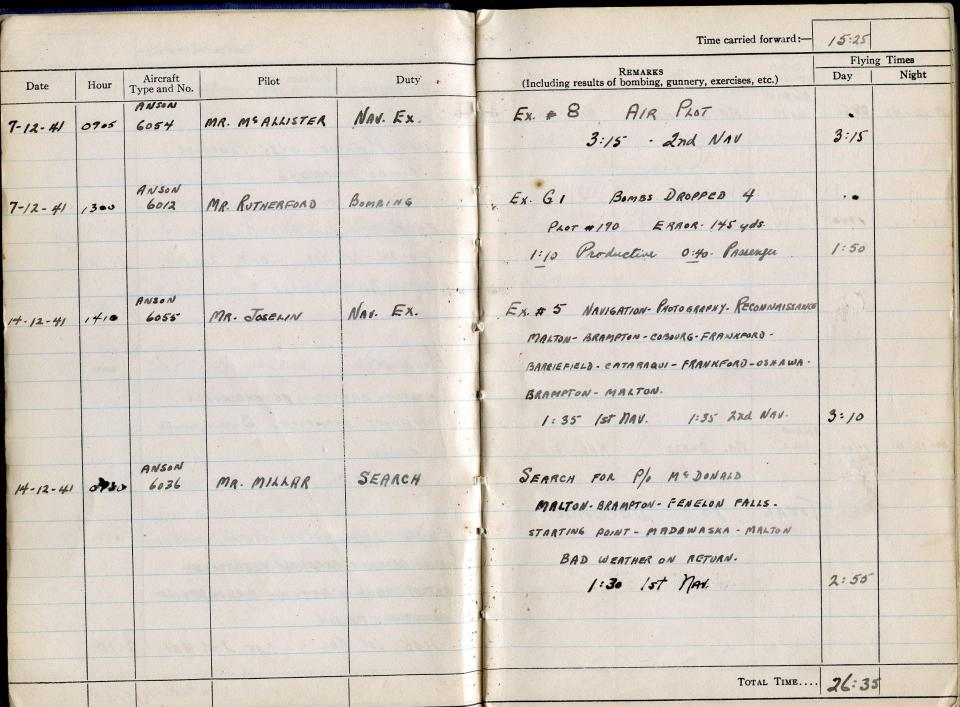 Time carried forward:— 15:25
Date Hour Aircraft Type and No. Pilot Duty REMARKS Flying Times
(Including results of bombing, gunnery, exercises, etc.) Day Night
ANSON
7-12-41 0905 6054 MR. McALLISTER NAV. EX. EX. # 8 AIR PLOT
3:15 - 2nd NAV 3:15
ANSON
7-12-41 1300 6012 MR. RUTHERFORD BOMBING EX. G1 BOMBS DROPPED 4
PLOT # 190 ERROR - 145 yds.
1:10 Productive 0:40 - Passenger 1:50
ANSON
14-12-41 1410 6055 MR. JOSELIN NAV. EX. EX. # 5 NAVIGATION - PHOTOGRAPHY - RECONNAISSANCE
MALTON - BRAMPTON - COBOURG - FRANKFORD -
BARRIEFIELD - CATARAQUI - FRANKFORD - OSHAWA -
BRAMPTON - MALTON.
1:35 1st NAV. 1:35 2nd NAV. 3:10
ANSON
14-12-41 6036 MR. MILLAR SEARCH SEARCH FOR P/O McDONALD
MALTON - BRAMPTON - FENELON FALLS -
STARTING POINT - MADAWASKA - MALTON
BAD WEATHER ON RETURN.
1:30 1st NAV. 2:55
TOTAL TIME.... 26:35